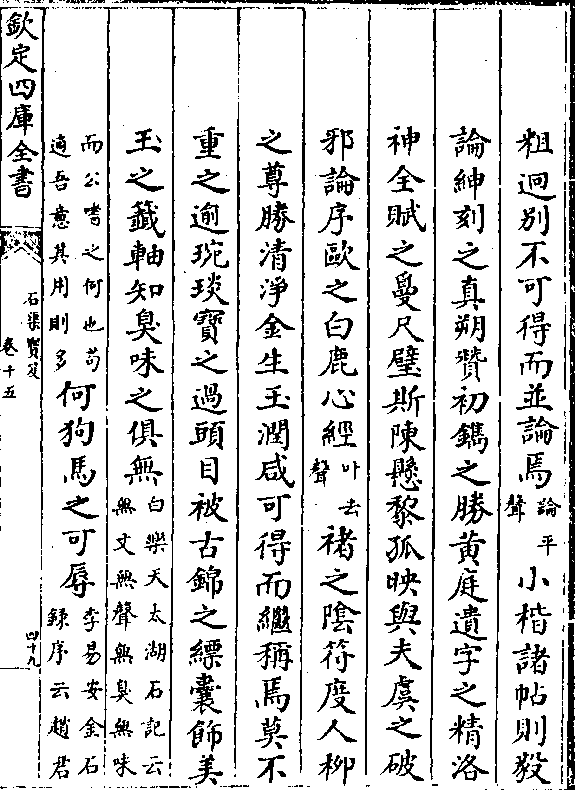 粗迥別不可得而並論焉論平聲小楷諸帖則毅
論紳刻之真朔贊初鐫之勝黄庭遺字之精洛
神全賦之㬅尺璧斯陳懸黎孤映與夫虞之破
邪論序歐之白鹿心經叶去聲褚之陰符度人柳
之尊勝清淨金生玉潤咸可得而繼稱焉莫不
重之逾琬琰寶之過頭目被古錦之縹囊飾美
玉之籖軸知臭味之俱無白樂天太湖石記云無文無聲無臭無味
而公嗜之何也苟適吾意其用則多何狗馬之可辱李易安金石錄序云趙君
欽定四庫全書
石渠寳笈
卷十五
四十九